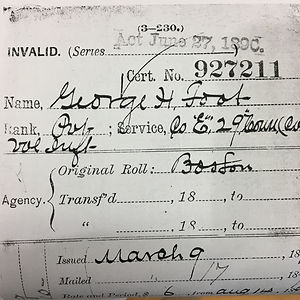 (3—230.)
INVALID. (Series
Act June 27, 1890.
Cert. No. 927211
Name, George H. Foot
Rank, Pvt ; Service, Co "E", 29" Conn
Vol Inft
Original Roll: Boston
Agency: Transf'd , 18 , to
" , 18 , to
Issued March 9 , 18
Mailed 17 , 18
Rate and Period, $ 6 from